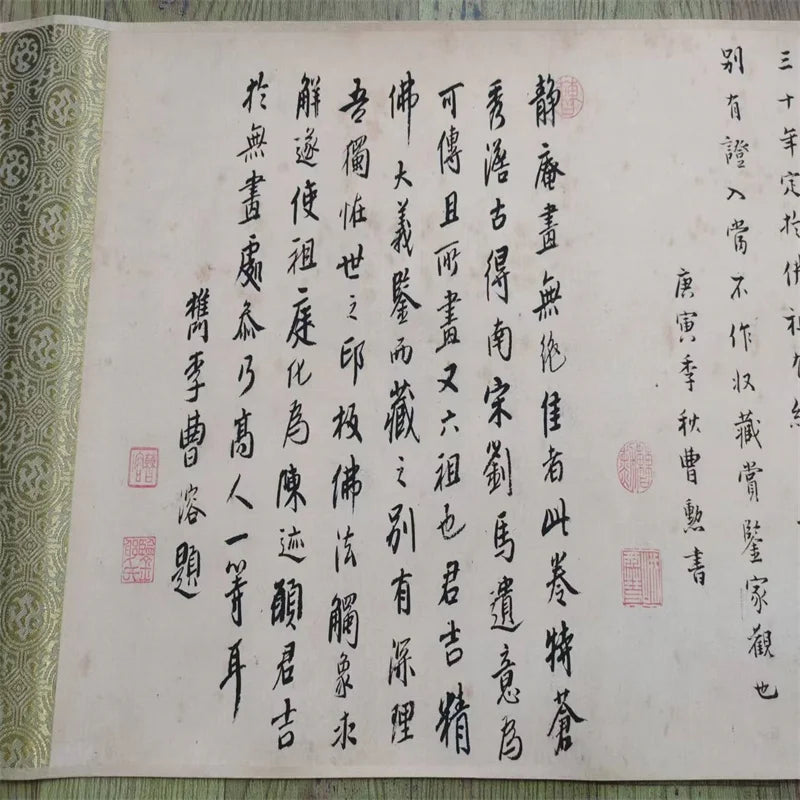 三十年定於佛祖
别有證入當不作收藏賞鑒家觀也
庚寅季秋曹勲書
靜庵畫無絶佳者此卷特蒼
秀澹古得南宋劉馬遺意為
可傳且所畫又六祖也君吉精
佛大義鑒而藏之别有深理
吾獨恠世之印板佛法觸象求
解遂使祖庭化為陳迹願君吉
於無畫處叅乃高人一等耳
檇李曹溶題